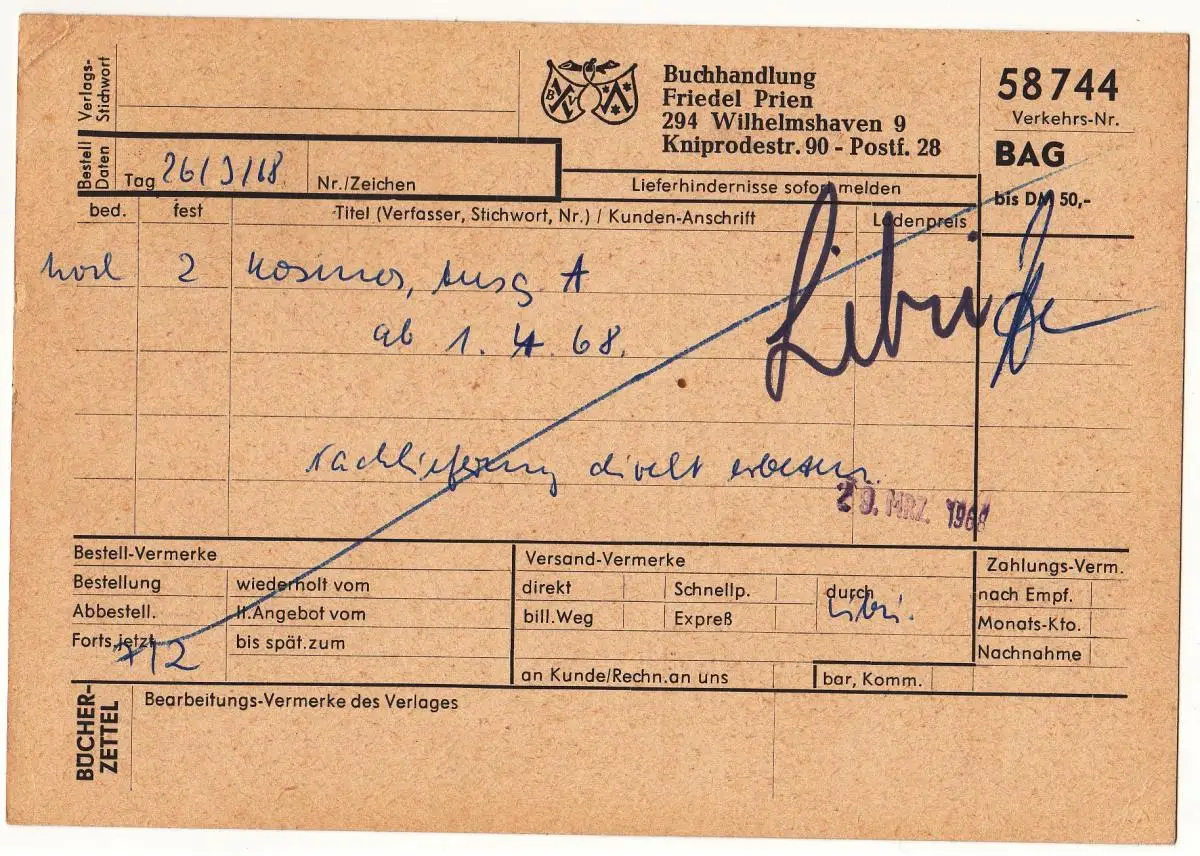 Verlags-
Stichwort
Buchhandlung
Friedel Prien
294 Wilhelmshaven 9
Kniprodestr. 90 - Postf. 28
58744
Verkehrs-Nr.
BAG
bis DM 50,-
Bestell
Daten
Tag 26/3/68
Nr./Zeichen
Lieferhindernisse sofort melden
bed. fest Titel (Verfasser, Stichwort, Nr.) / Kunden-Anschrift Ladenpreis
2 Kosmos, Ausg A
ab 1. 4. 68.
Libri
Nachlieferung direkt erbeten.
29. MRZ. 1968
Bestell-Vermerke
Bestellung wiederholt vom
Abbestell. lt. Angebot vom
Forts. jetzt bis spät. zum
12
Versand-Vermerke
direkt Schnellp. durch Libri.
bill. Weg Expreß
an Kunde/Rechn. an uns bar, Komm.
Zahlungs-Verm.
nach Empf.
Monats-Kto.
Nachnahme
BÜCHER-
ZETTEL
Bearbeitungs-Vermerke des Verlages